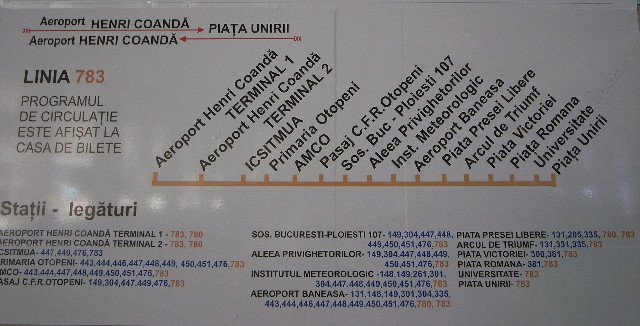 Aeroport HENRI COANDĂ PIAȚA UNIRII
Aeroport HENRI COANDĂ
LINIA 783
PROGRAMUL
DE CIRCULAȚIE
ESTE AFIȘAT LA
CASA DE BILETE
Aeroport Henri Coandă
TERMINAL 1
Aeroport Henri Coandă
TERMINAL 2
ICSITMUA
Primaria Otopeni
AMCO
Pasaj C.F.R.Otopeni
Sos. Buc - Ploiesti 107
Aleea Privighetorilor
Inst. Meteorologic
Aeroport Baneasa
Piata Presei Libere
Arcul de Triumf
Piata Victoriei
Piata Romana
Universitate
Piața Unirii
Stații - legături
AEROPORT HENRI COANDĂ TERMINAL 1 - 783, 780
AEROPORT HENRI COANDĂ TERMINAL 2 - 783, 780
ICSITMUA - 447,449,476,783
PRIMARIA OTOPENI - 443,444,446,447,448,449, 450,451,476,783
AMCO - 443,444,447,448,449,450,451,476,783
PASAJ C.F.R.OTOPENI - 149,304,447,449,476,783
SOS. BUCURESTI-PLOIESTI 107- 149,304,447,448,
449,450,451,476,783
ALEEA PRIVIGHETORILOR- 149,304,447,448,449,
450,451,476,783
INSTITUTUL METEOROLOGIC - 148,149,261,301,
304,447,448,449,450,451,476,783
AEROPORT BANEASA- 131,148,149,301,304,335,
443,444,446,447,448,449,450,451,476,780, 783
PIATA PRESEI LIBERE- 131,205,335, 780, 783
ARCUL DE TRIUMF- 131,331,335,783
PIATA VICTORIEI- 300,381,783
PIATA ROMANA- 381,783
UNIVERSITATE- 783
PIATA UNIRII- 783